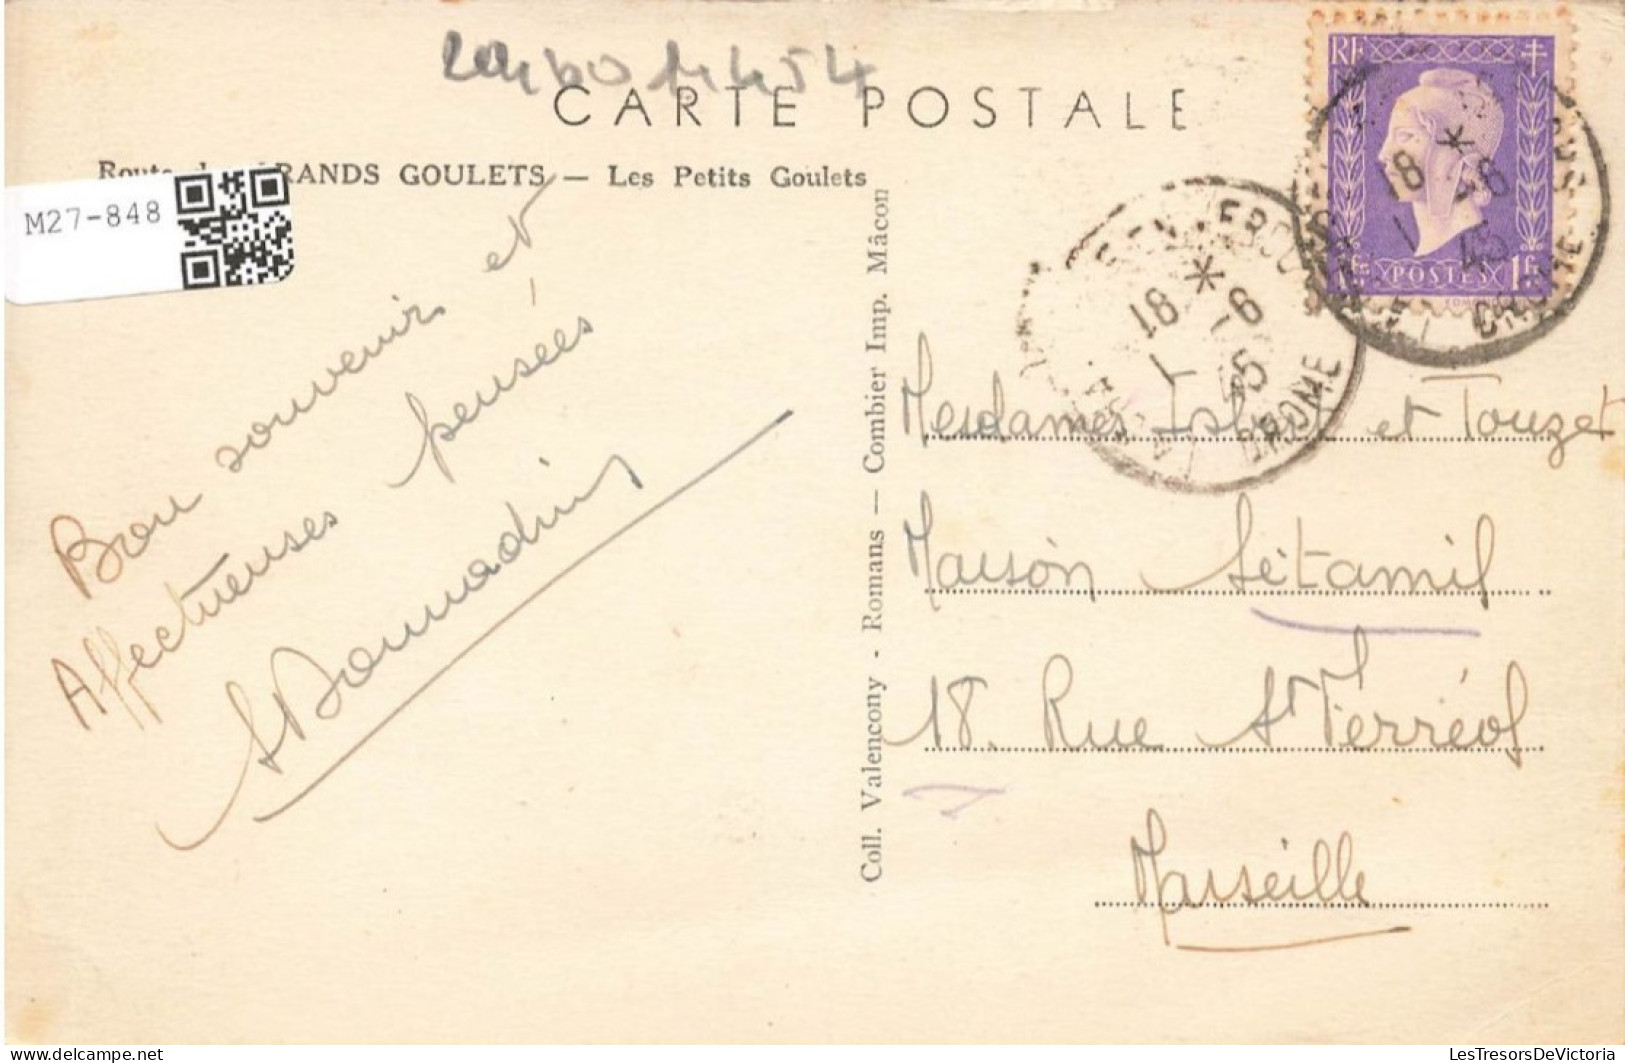 CARTE POSTALE
GRANDS GOULETS — Les Petits Goulets
M27-848
Bon souvenir et
Affectueuses pensées
Coll. Valencony - Romans — Combier Imp. Mâcon
RF
POSTES 1fr.
18 * -6
1 45
DROME
18 * -6
1 45
DROME
Mesdames et Touzet
Maison Sétamil
18. Rue St Ferréol
Marseille
www.delcampe.net
LesTresorsDeVictoria